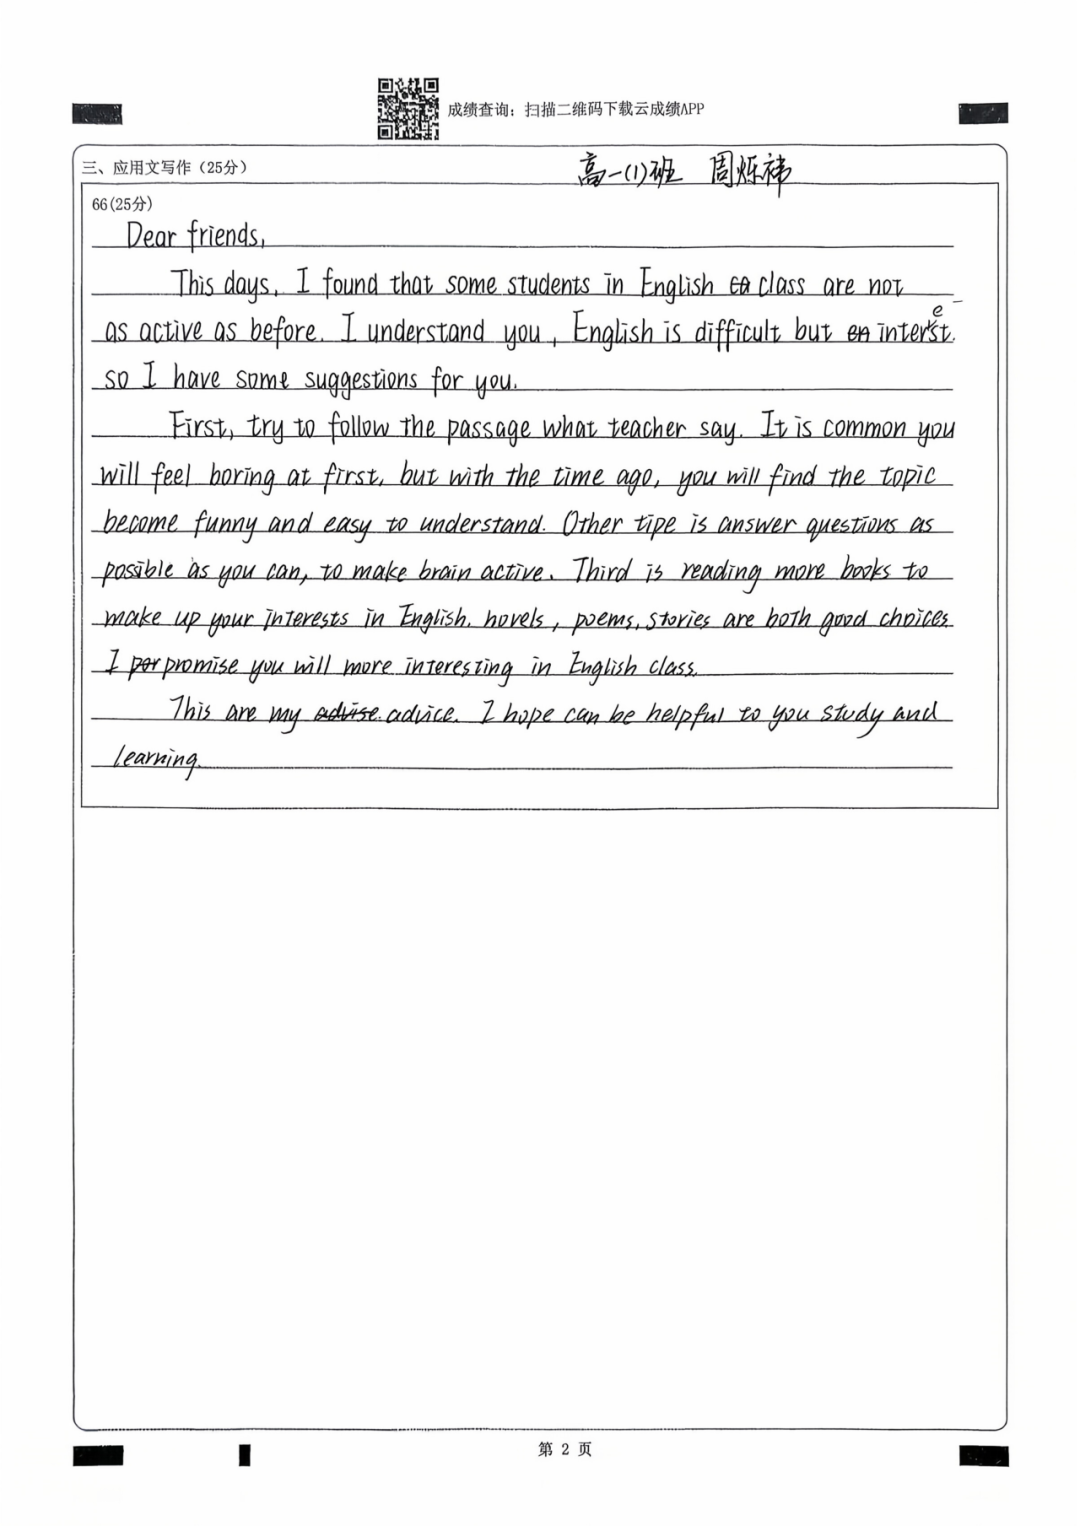 成绩查询：扫描二维码下载云成绩APP
三、应用文写作（25分）
高一(1)班 周烁祎
66(25分)
Dear friends,
This days, I found that some students in English ca class are not
as active as before. I understand you, English is difficult but en interest.
so I have some suggestions for you.
First, try to follow the passage what teacher say. It is common you
will feel boring at first, but with the time ago, you will find the topic
become funny and easy to understand. Other tipe is answer questions as
possible as you can, to make brain active. Third is reading more books to
make up your interests in English. novels, poems, stories are both good choices.
I por promise you will more interesting in English class.
This are my advise. advice. I hope can be helpful to you study and
learning.
第 2 页